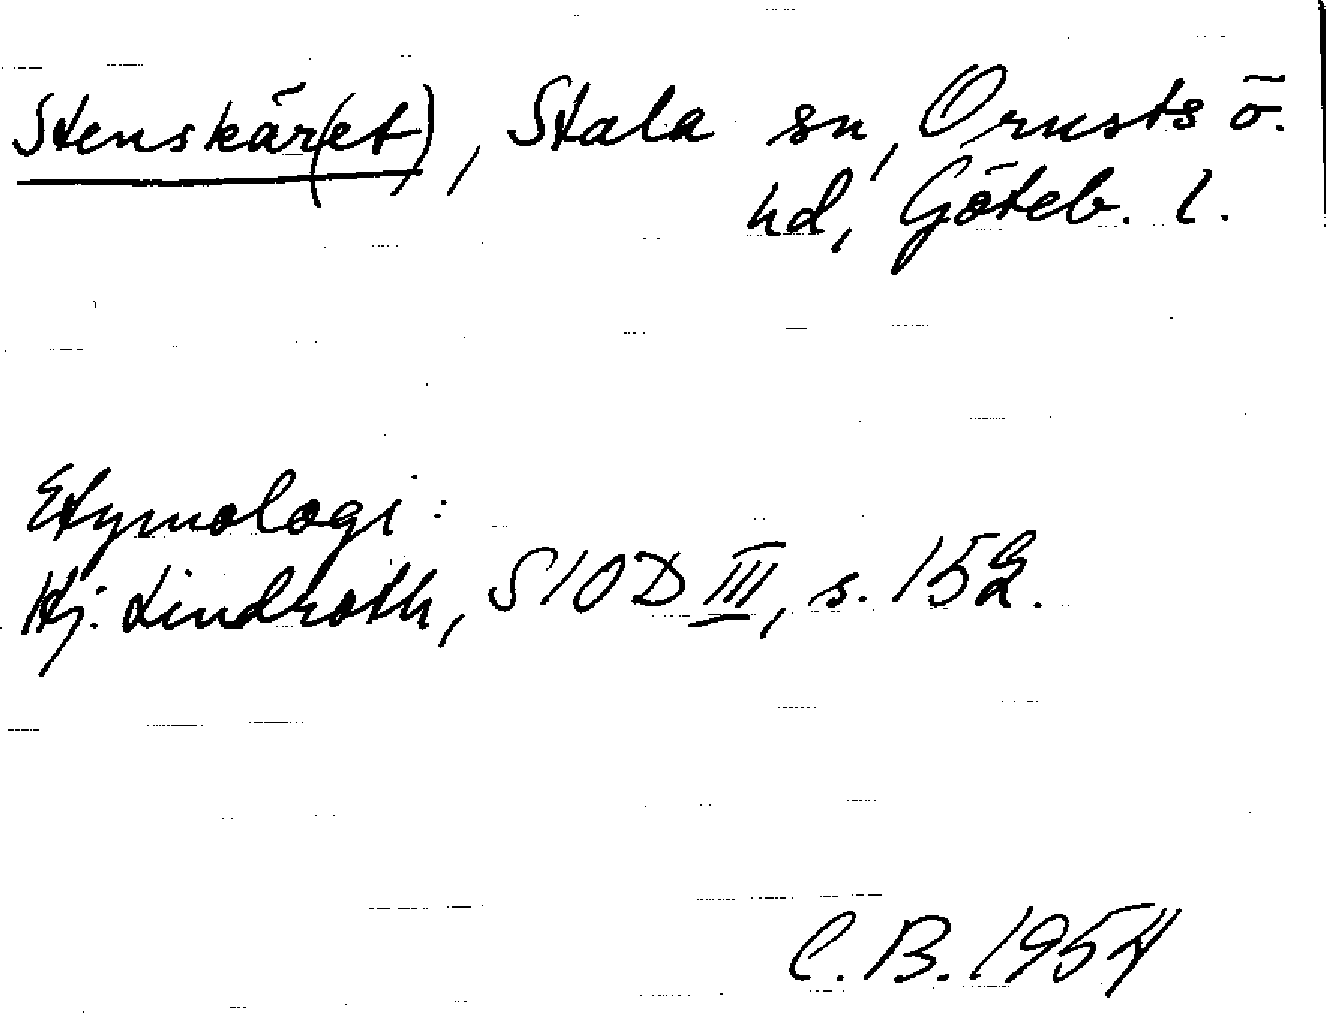 Stenskär(et), Stala sn, Orusts ö.
hd, Göteb. l.
Etymologi:
Hj. Lindroth, SIOD III, s. 152.
C. B. 1954